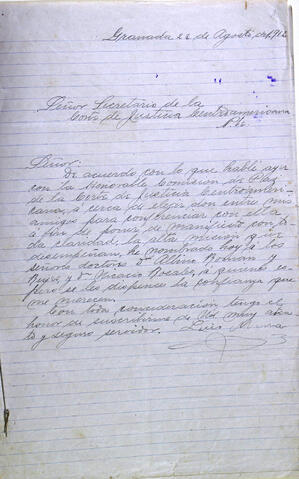 Granada 22 de Agosto, de 1912
Señor Secretario de la
Corte de Justicia Centroamericana
Señor:
De acuerdo con lo que hablé ayer
con la Honorable Comisión de Paz
de la Corte de Justicia Centroameri-
cana, á cerca de elegir don entre mis
amigos para conferenciar con ella
á fin de poner de manifiesto con to-
da claridad, la alta misión que
desempeñan, he nombrado hoy á los
señores doctores Dn Albino Román y
Reyes, y Dn Horacio Bocales, á quienes es-
pero se les dispense la confianza que
me merecen.
Con toda consideración tengo el
honor de suscribirme de Ud muy aten-
to y seguro servidor. Luis Mena